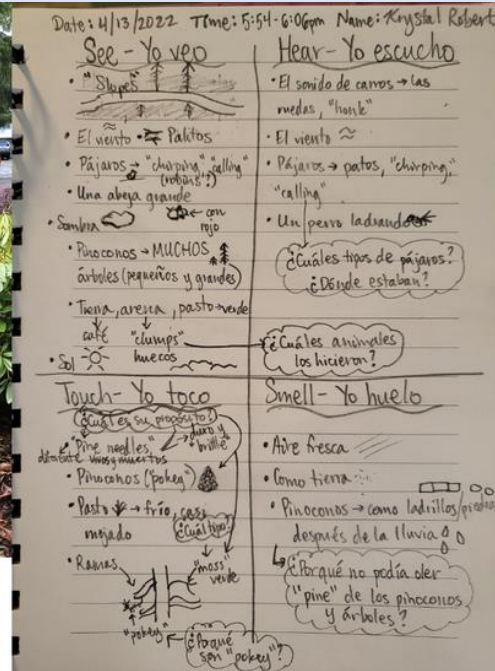 Date: 4/13/2022 Time: 5:54-6:06pm Name: Krystal Robert
See - Yo veo
• "Slopes"
• El viento • Palitos
• Pájaros → "chirping", "calling"
(robins?)
• Una abeja grande
• Sombra
con
rojo
• Pinoconos → MUCHOS
árboles (pequeños y grandes)
• Tierra, arena, pasto → verde
café "clumps"
huecos
• Sol
Hear - Yo escucho
• El sonido de carros → las
ruedas, "honk"
• El viento
• Pájaros → patos, "chirping,"
"calling"
• Un perro ladrando
¿Cuáles tipos de pájaros?
¿Dónde estaban?
¿Cuáles animales
los hicieron?
Touch - Yo toco
¿Cuál es su propósito?
• "Pine needles" duro y
"brittle"
diferente vivos y muertos
• Pinoconos ("pokey")
• Pasto → frío, casi
mojado
¿Cuál tipo?
• Ramas
"moss"
verde
"pokey"
¿Porqué
son "pokey"?
Smell - Yo huelo
• Aire fresca
• Como tierra
• Pinoconos → como ladrillos/piedra
después de la lluvia
¿Porqué no podía oler
"pine" de los pinoconos
y árboles?